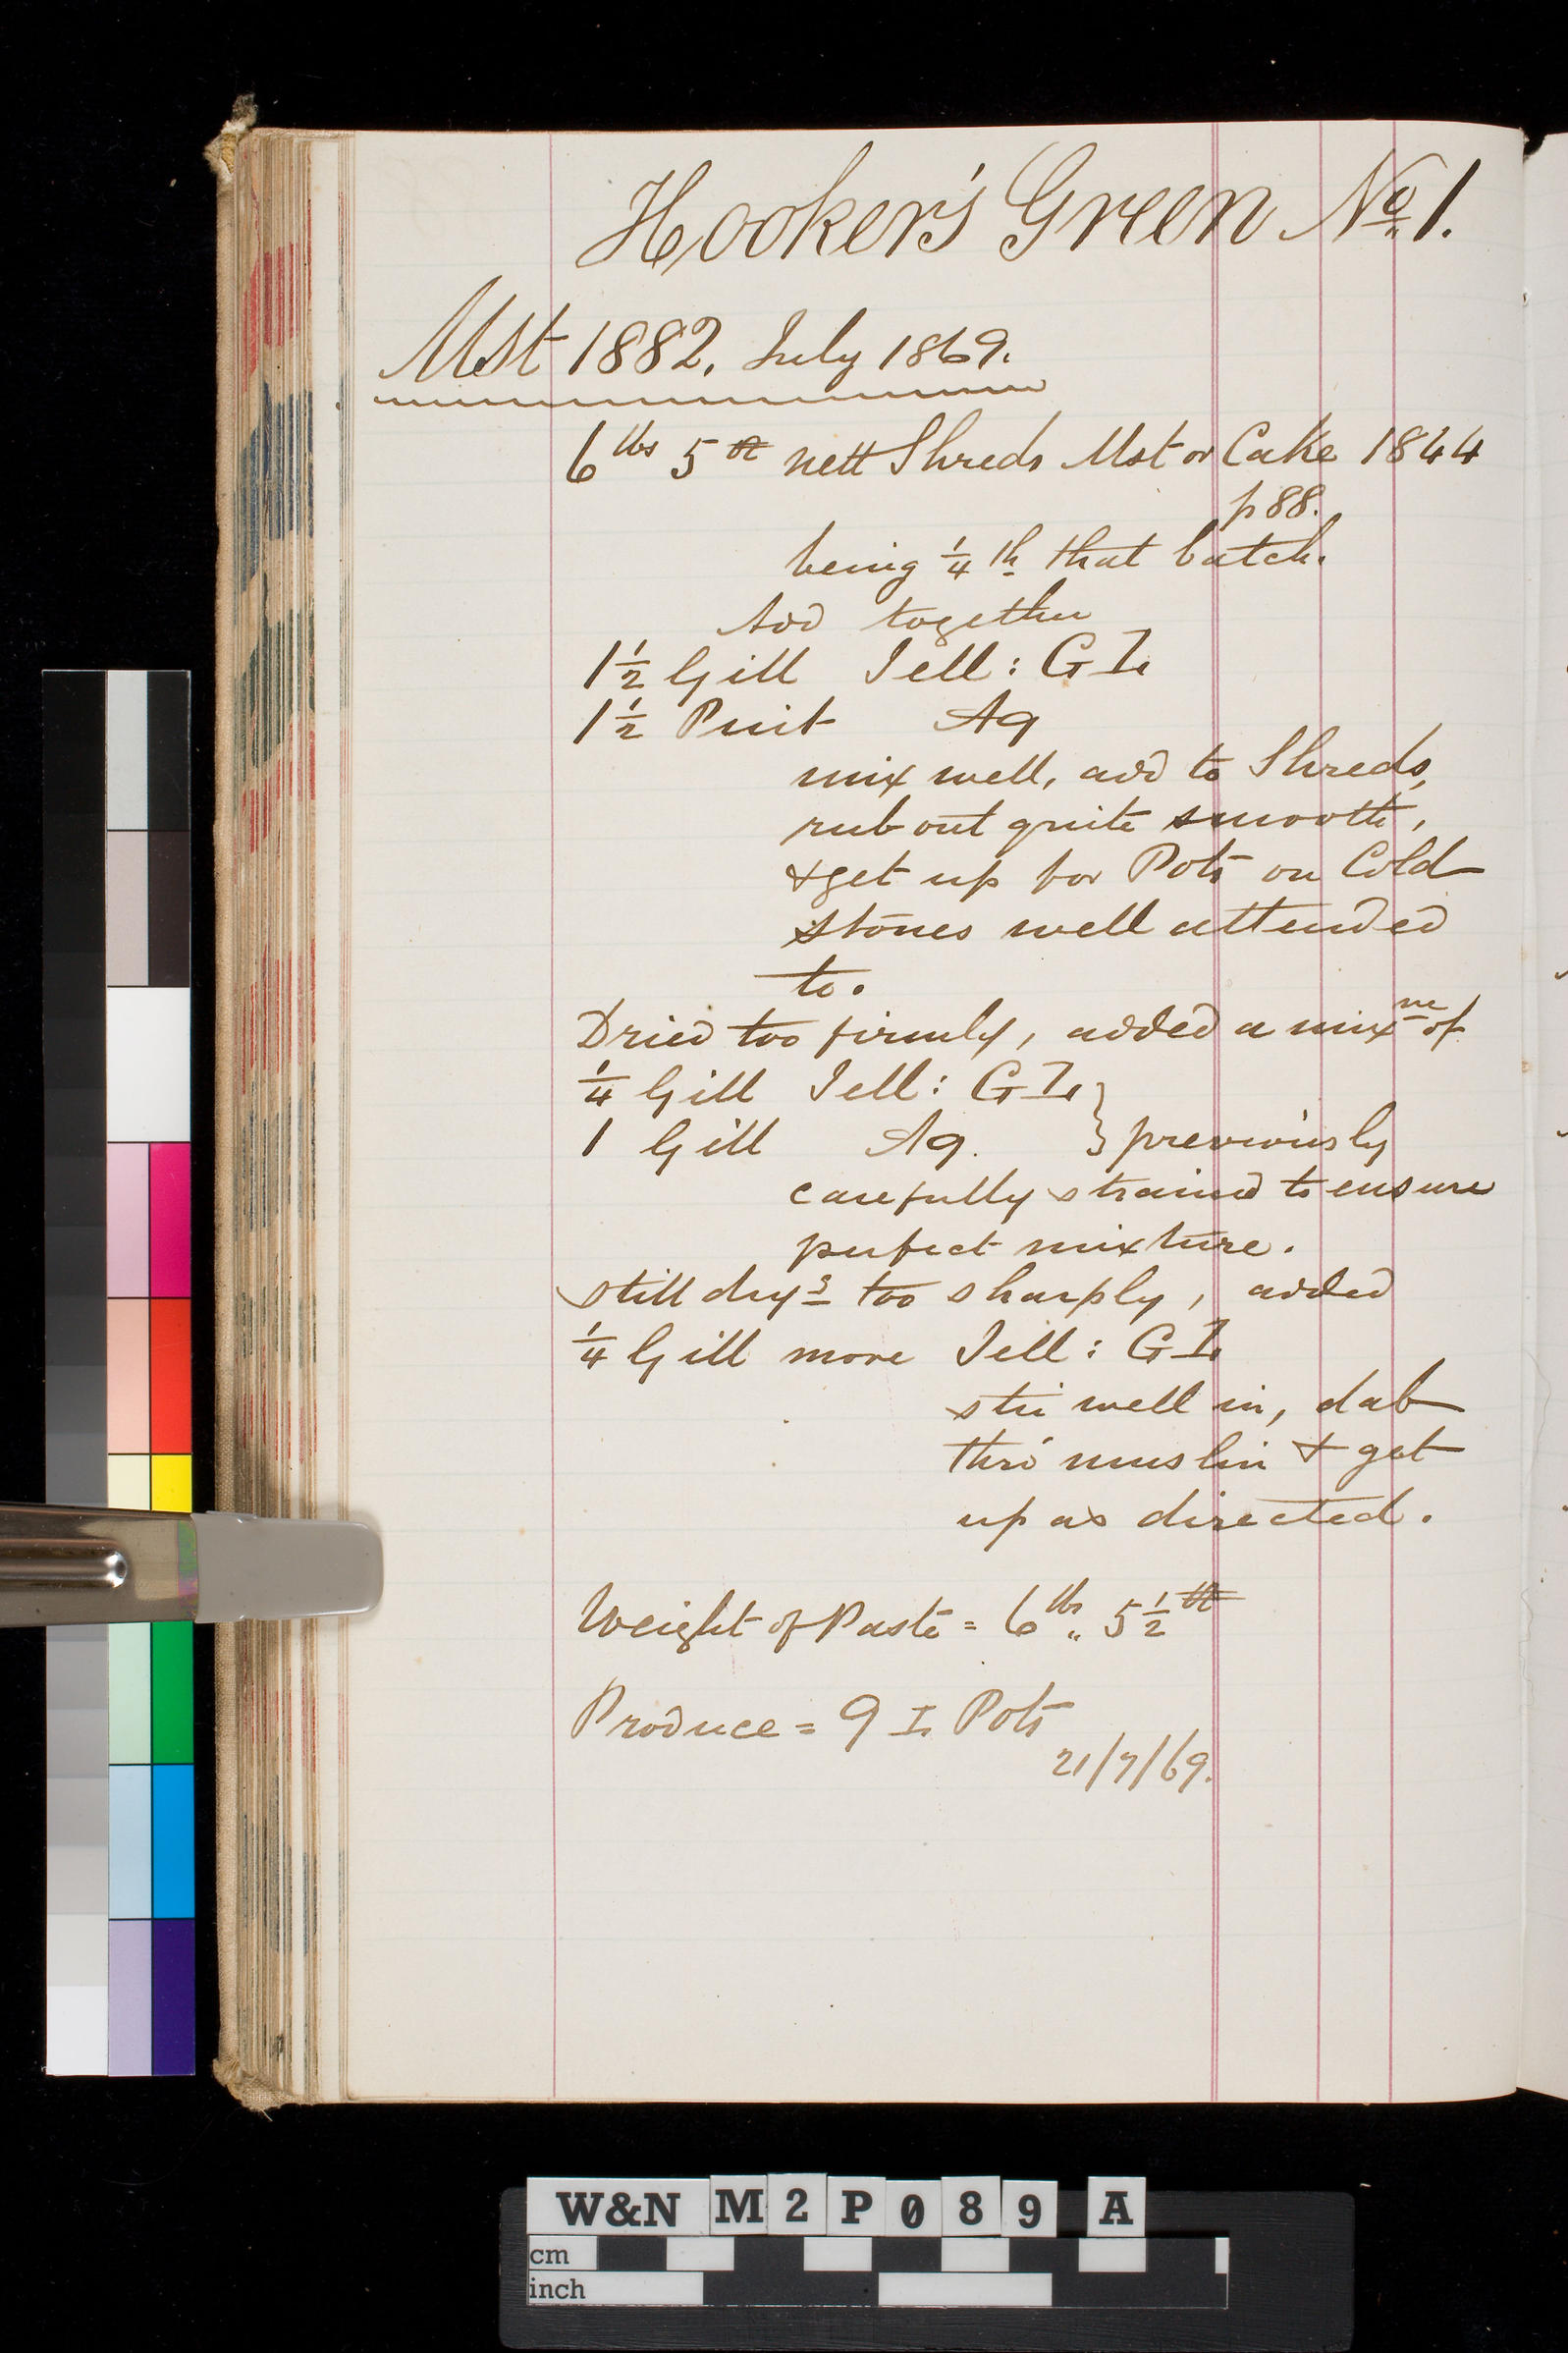 Hooker's Green No. 1.
Mst 1882. July 1869.
6 lbs 5 oz nett Shreds Mst or Cake 1844
p 88.
being 1/4 th that batch.
Add together
1 1/2 Gill Jell: G I.
1 1/2 Pint Aq
mix well, add to Shreds,
rub out quite smooth,
+ get up for Pots on Cold
stones well attended
to.
Dried too firmly, added a mixre of
1/4 Gill Jell: G I. }
1 Gill Aq. } previously
carefully strained to ensure
perfect mixture.
still dryg too sharply, added
1/4 Gill more Jell: G I.
stir well in, dab
thro' muslin + get
up as directed.
Weight of Paste = 6 lbs " 5 1/2 oz
Produce = 9 I. Pots
21/7/69.
W&N M2P089 A
cm
inch